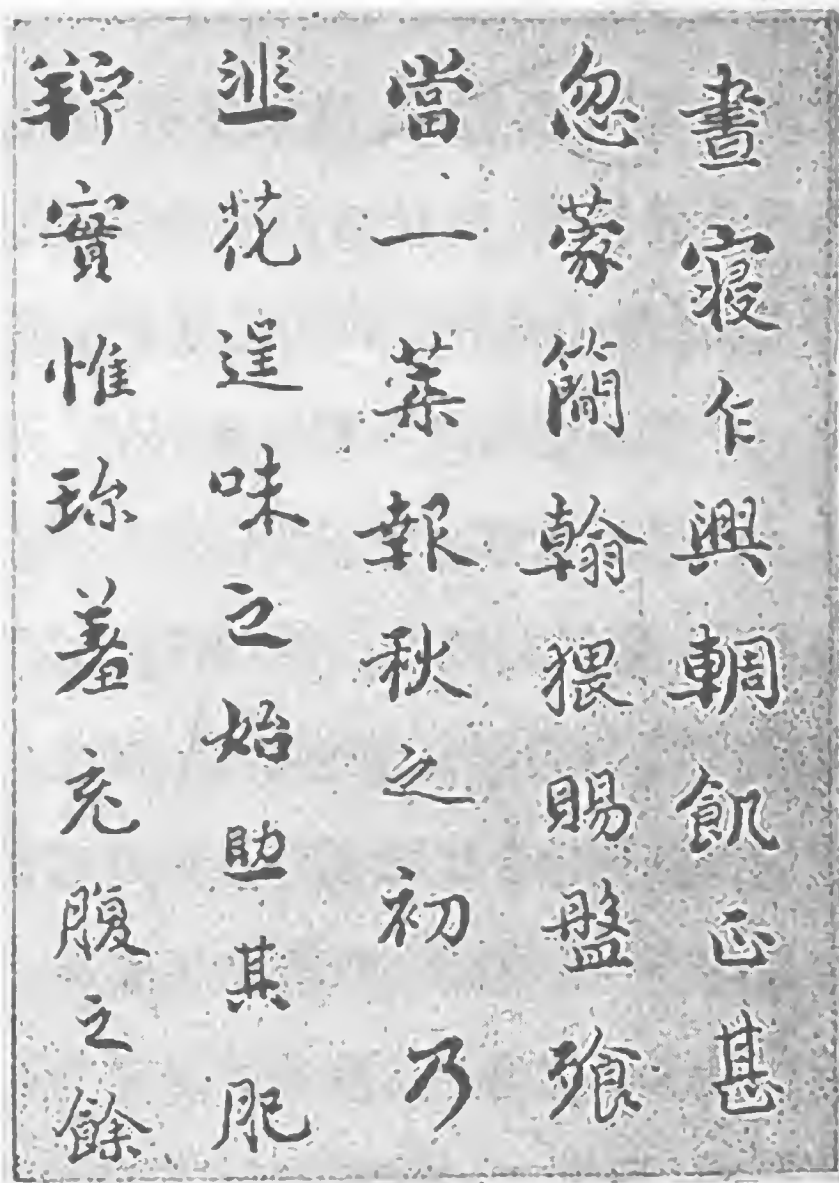 晝寢乍興輖飢正甚
忽蒙簡翰猥賜盤飧
當一葉報秋之初乃
韭花逞味之始助其肥
羜實惟珍羞充腹之餘